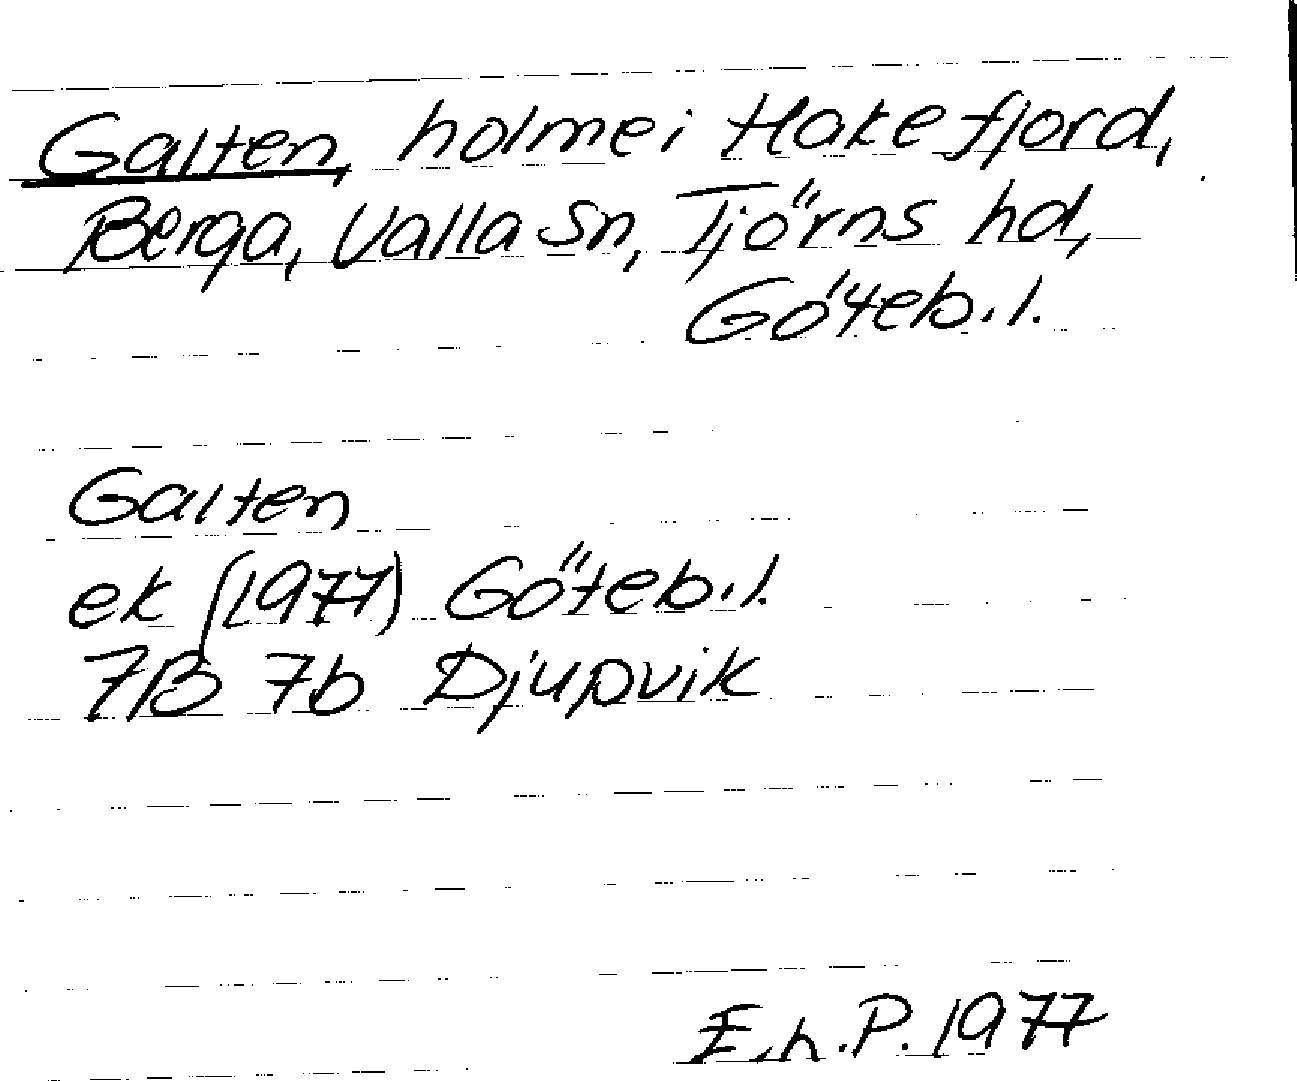 Galten, holme i Hakefjord,
Berga, Valla sn, Tjörns hd,
Göteb. l.
Galten
ek (1977) Göteb. l.
7B 7b Djupvik
E.h.P. 1977